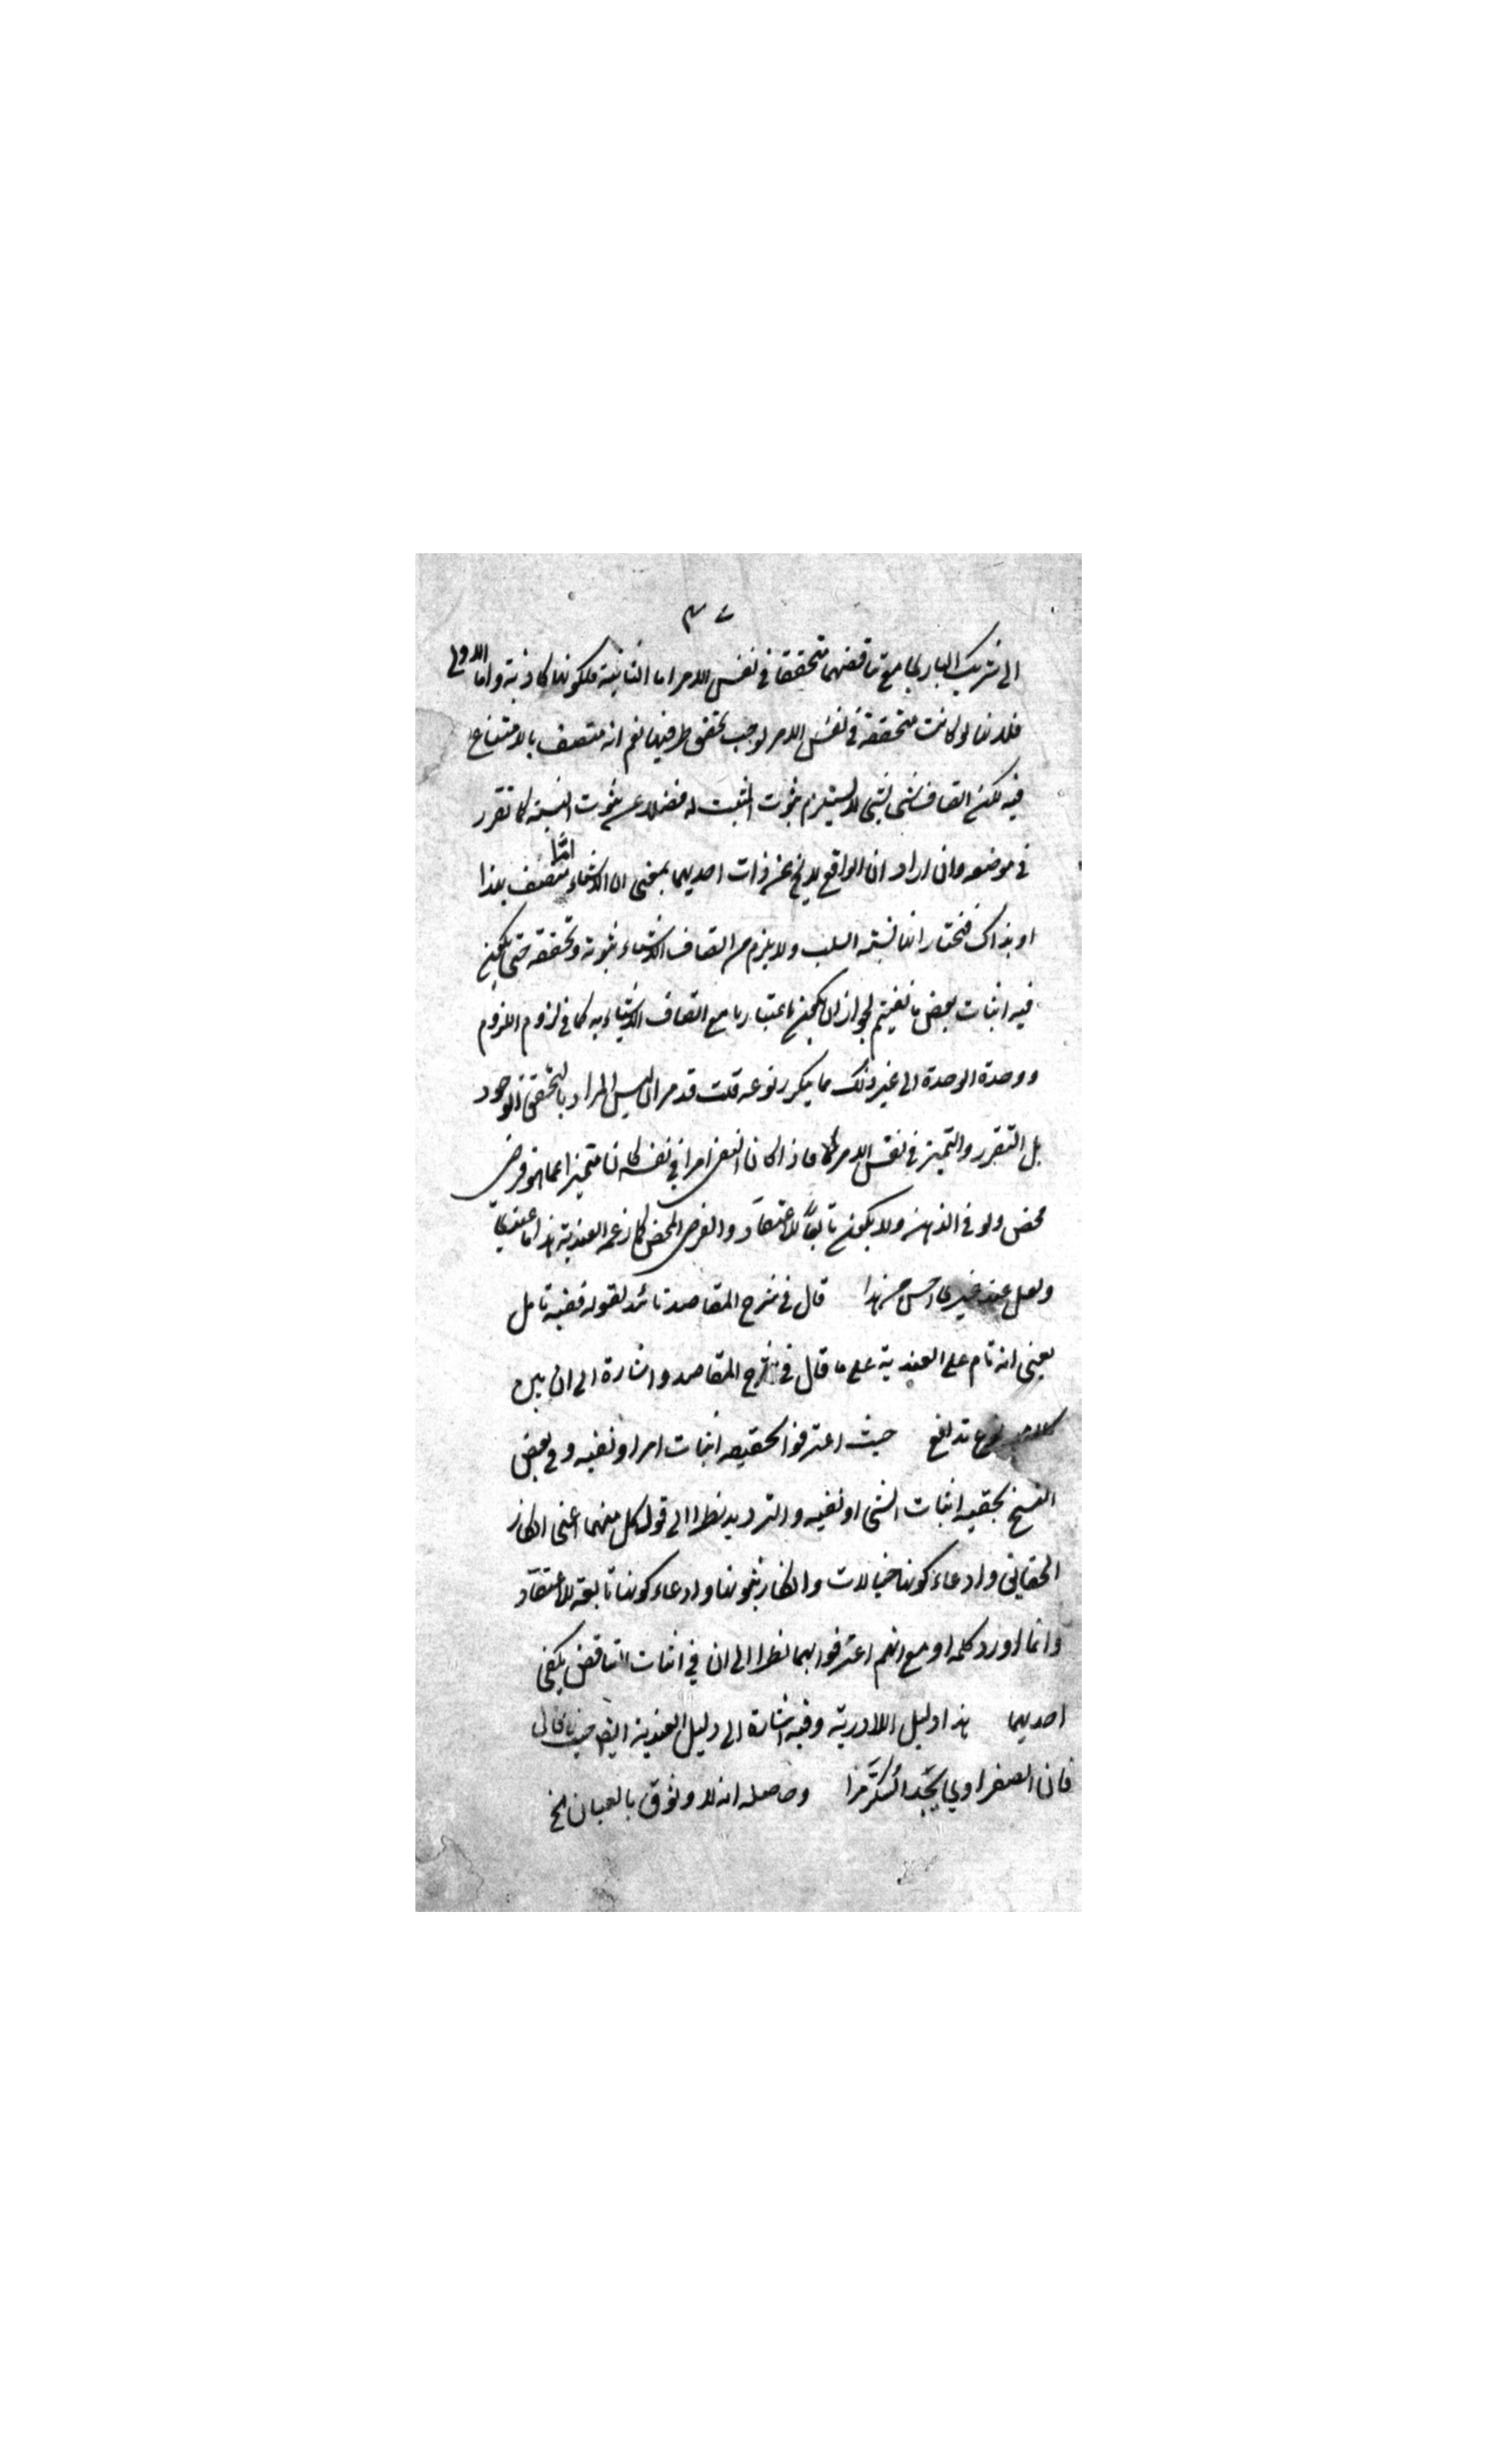 ٣٧
الى شريك الباري مع تناقضهما متحققا في نفس الامر اما الثانية فلكونها كاذبة واما الاولى
فلانها لو كانت متحققة في نفس الامر لوجب تحقق طرفيها نعم انه متصف بالامتناع
فيه لكن اتصاف شئ بشئ لا يستلزم ثبوت المثبت له فضلا عن ثبوت النسبة كما تقرر
في موضعه وان اراد ان الواقع لا يخ عن ذات احديهما بمعنى ان الاشياء اما متصف بهذا
او بذاك فنختار انها نسبة السلب ولا يلزم من اتصاف الاشياء ثبوته وتحققه حتى يكون
فيه اثبات بعض ما نفيتم لجواز ان يكون اعتباريا مع اتصاف الاشياء به كما في لزوم اللزوم
ووحدة الوحدة الى غير ذلك مما يكرر نوعه قلت قد مر ان ليس المراد بالتحقق الوجود
بل التقرر والتميز في نفس الامر فاذا كان النفى امرا في نفسه كان متميزا عما هو فرض
محض ولو في الذهن ولا يكون تابعا للاعتقاد والفرض المحض كما زعمه العندية هذا ما عندي
ولعل عند غيري احسن من هذا قال في شرح المقاصد تائيد لقوله ففيه تامل
يعني انه تام على العندية على ما قال في شرح المقاصد واشارة الى ان بين
كلاميه نوع تدافع حيث اعترفوا بحقيقه اثبات امر او نفيه وفي بعض
النسخ بحقيه اثبات الشئ او نفيه والترديد نظرا الى قول كل منهما اعنى انكار
الحقائق وادعاء كونها خيالات وانكار ثبوتها وادعاء كونها تابعة للاعتقاد
وانما اورد كلمة او مع انهم اعترفوا بهما نظرا الى ان في اثبات التناقض يكفى
احديهما هذا دليل اللاادرية وفيه اشارة الى دليل العندية ايضا حيث قال
فان الصفراوي يجد السكر مرا وحاصله انه لا وثوق بالعيان الخ